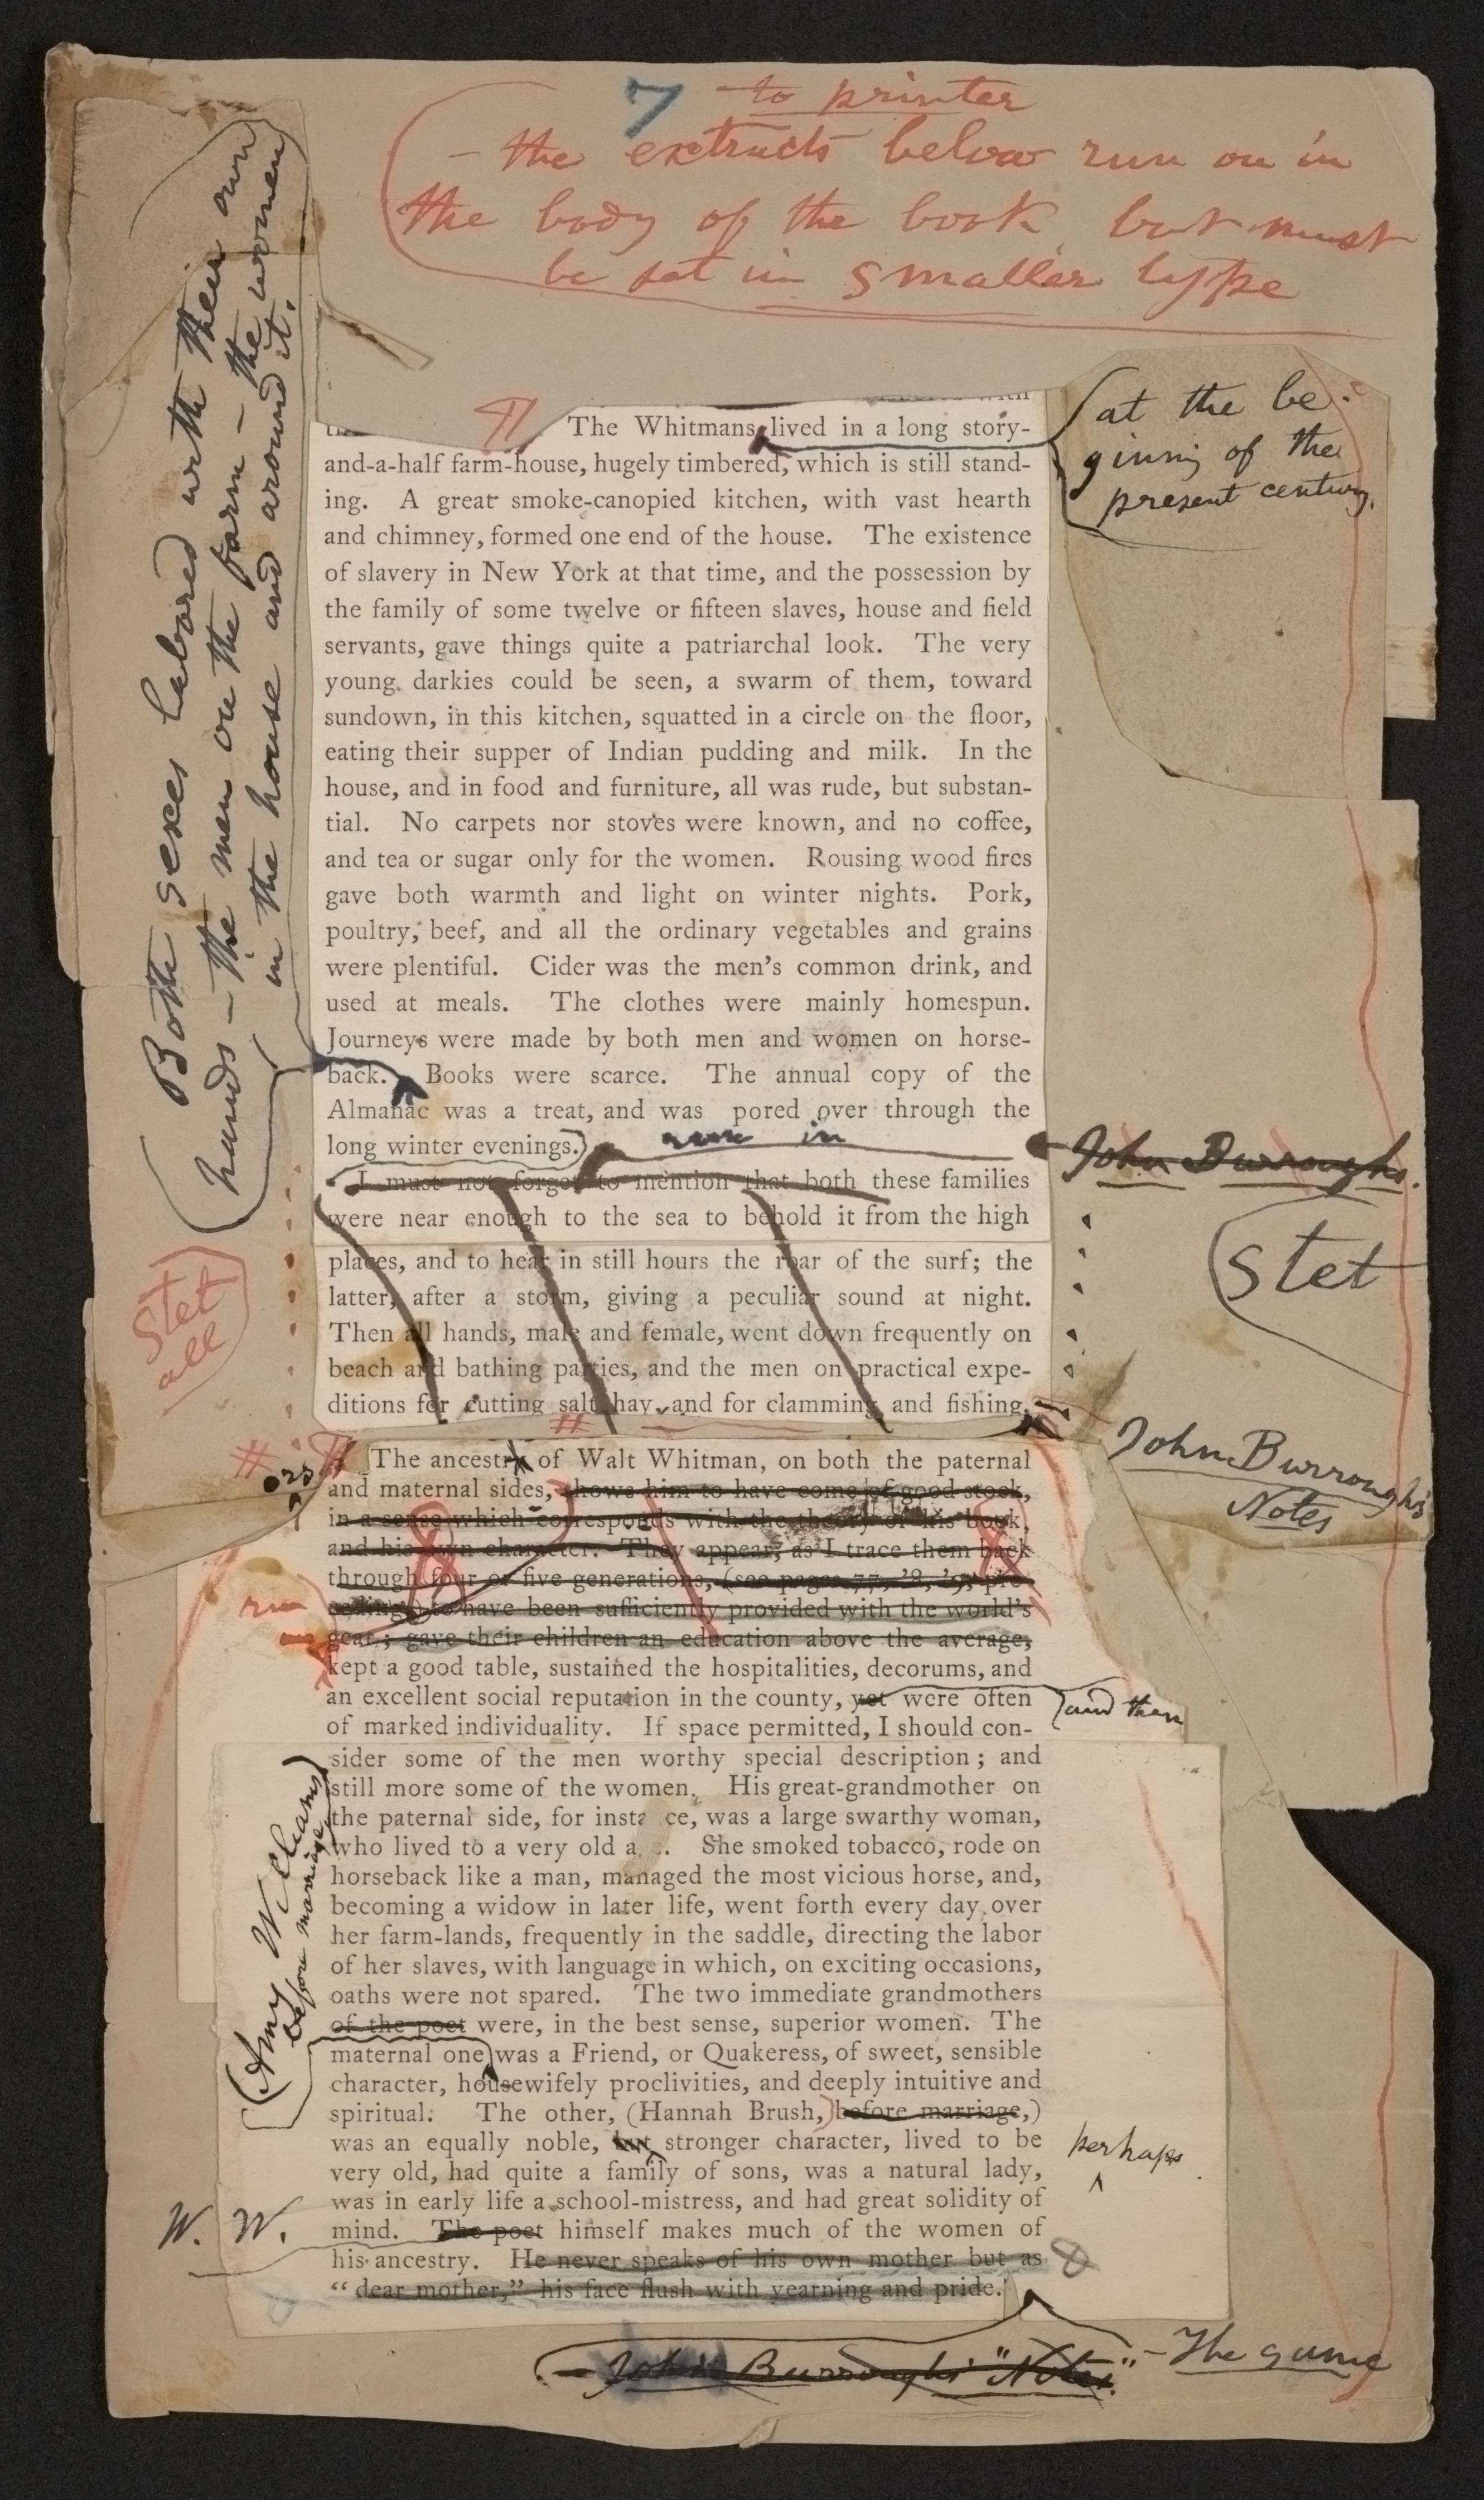 7
to printer
– the extracts below run on in
the body of the book, but must
be set in smaller type
Both sexes labored with their own
hands – the men on the farm – the women
in the house and around it.
with
The Whitmans lived in a long story-
at the be-
ginning of the
present century,
and-a-half farm-house, hugely timbered, which is still stand-
ing. A great smoke-canopied kitchen, with vast hearth
and chimney, formed one end of the house. The existence
of slavery in New York at that time, and the possession by
the family of some twelve or fifteen slaves, house and field
servants, gave things quite a patriarchal look. The very
young darkies could be seen, a swarm of them, toward
sundown, in this kitchen, squatted in a circle on the floor,
eating their supper of Indian pudding and milk. In the
house, and in food and furniture, all was rude, but substan-
tial. No carpets nor stoves were known, and no coffee,
and tea or sugar only for the women. Rousing wood fires
gave both warmth and light on winter nights. Pork,
poultry, beef, and all the ordinary vegetables and grains
were plentiful. Cider was the men's common drink, and
used at meals. The clothes were mainly homespun.
Journeys were made by both men and women on horse-
back. Books were scarce. The annual copy of the
Almanac was a treat, and was pored over through the
long winter evenings.
run in
John Burroughs.
I must not forget to mention that both these families
were near enough to the sea to behold it from the high
Stet
places, and to hear in still hours the roar of the surf; the
latter, after a storm, giving a peculiar sound at night.
Stet
all
Then all hands, male and female, went down frequently on
beach and bathing parties, and the men on practical expe-
ditions for cutting salt hay, and for clamming and fishing.
#
#
John Burroughs's
Notes
The ancestry of Walt Whitman, on both the paternal
and maternal sides, shows him to have come of good stock,
in a sense which corresponds with the theory of his book,
and his own character. They appear, as I trace them back
through four or five generations, (see pages 77, '8, '9, pre-
ceding,) to have been sufficiently provided with the world's
gear; gave their children an education above the average,
run
kept a good table, sustained the hospitalities, decorums, and
an excellent social reputation in the county, yet were often
and them
of marked individuality. If space permitted, I should con-
sider some of the men worthy special description; and
still more some of the women. His great-grandmother on
the paternal side, for insta ce, was a large swarthy woman,
who lived to a very old a . She smoked tobacco, rode on
horseback like a man, managed the most vicious horse, and,
becoming a widow in later life, went forth every day over
her farm-lands, frequently in the saddle, directing the labor
of her slaves, with language in which, on exciting occasions,
oaths were not spared. The two immediate grandmothers
of the poet were, in the best sense, superior women. The
(Amy Williams
before marriage)
maternal one was a Friend, or Quakeress, of sweet, sensible
character, housewifely proclivities, and deeply intuitive and
spiritual. The other, (Hannah Brush, before marriage,)
was an equally noble, but stronger character, lived to be
perhaps
very old, had quite a family of sons, was a natural lady,
was in early life a school-mistress, and had great solidity of
W. W.
mind. The poet himself makes much of the women of
his ancestry. He never speaks of his own mother but as
“dear mother,” his face flush with yearning and pride.
– John Burroughs' "Notes."
– The same